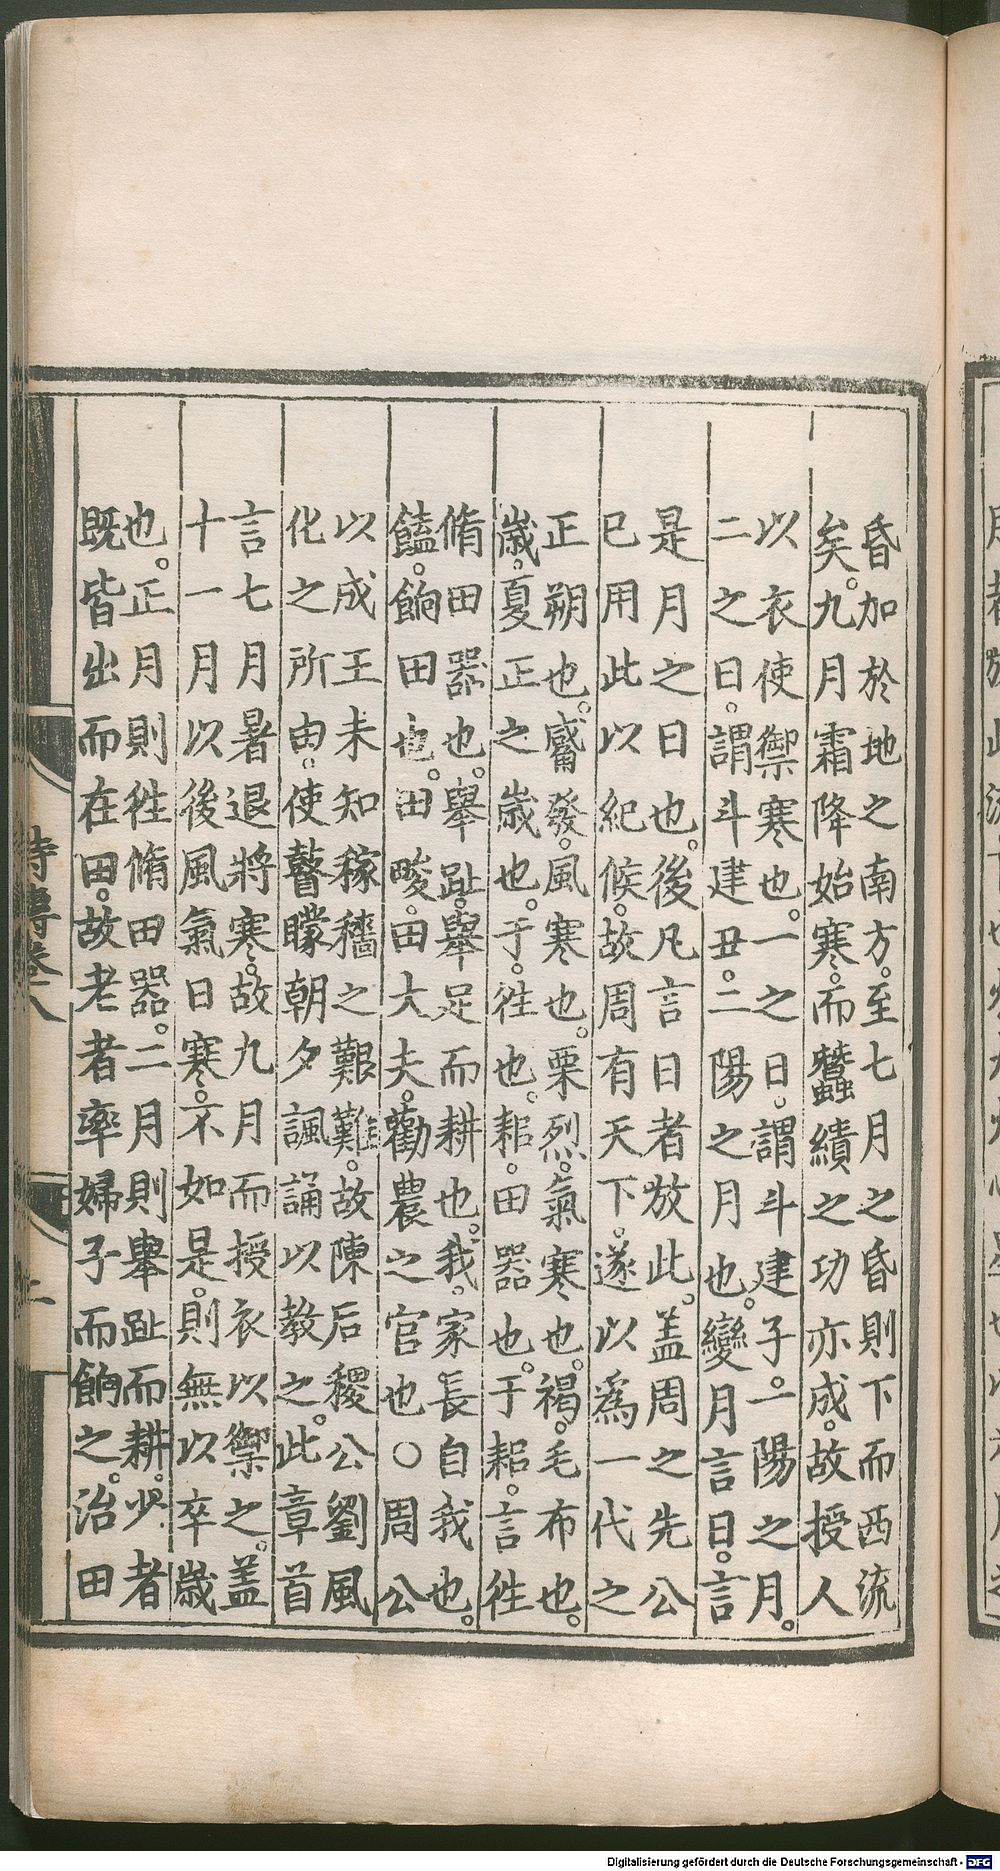 昏加於地之南方。至七月之昏則下而西流
矣。九月霜降始寒。而蠶績之功亦成。故授人
以衣使禦寒也。一之日。謂斗建子。一陽之月。
二之日。謂斗建丑。二陽之月也。變月言日。言
是月之日也。後凡言日者放此。盖周之先公
已用此以紀候。故周有天下。遂以爲一代之
正朔也。觱發。風寒也。栗烈。氣寒也。褐。毛布也。
歲。夏正之歲也。于。徃也。耜。田器也。于耜。言徃
脩田器也。舉趾。舉足而耕也。我。家長自我也。
饁。餉田也。田畯。田大夫。勸農之官也〇周公
以成王未知稼穡之艱難。故陳后稷公劉風
化之所由。使瞽矇朝夕諷誦以教之。此章首
言七月暑退將寒。故九月而授衣以禦之。盖
十一月以後風氣日寒。不如是。則無以卒歲
也。正月則徃脩田器。二月則舉趾而耕。少者
既皆出而在田。故老者率婦子而餉之。治田
詩傳卷八
Digitalisierung gefördert durch die Deutsche Forschungsgemeinschaft - DFG